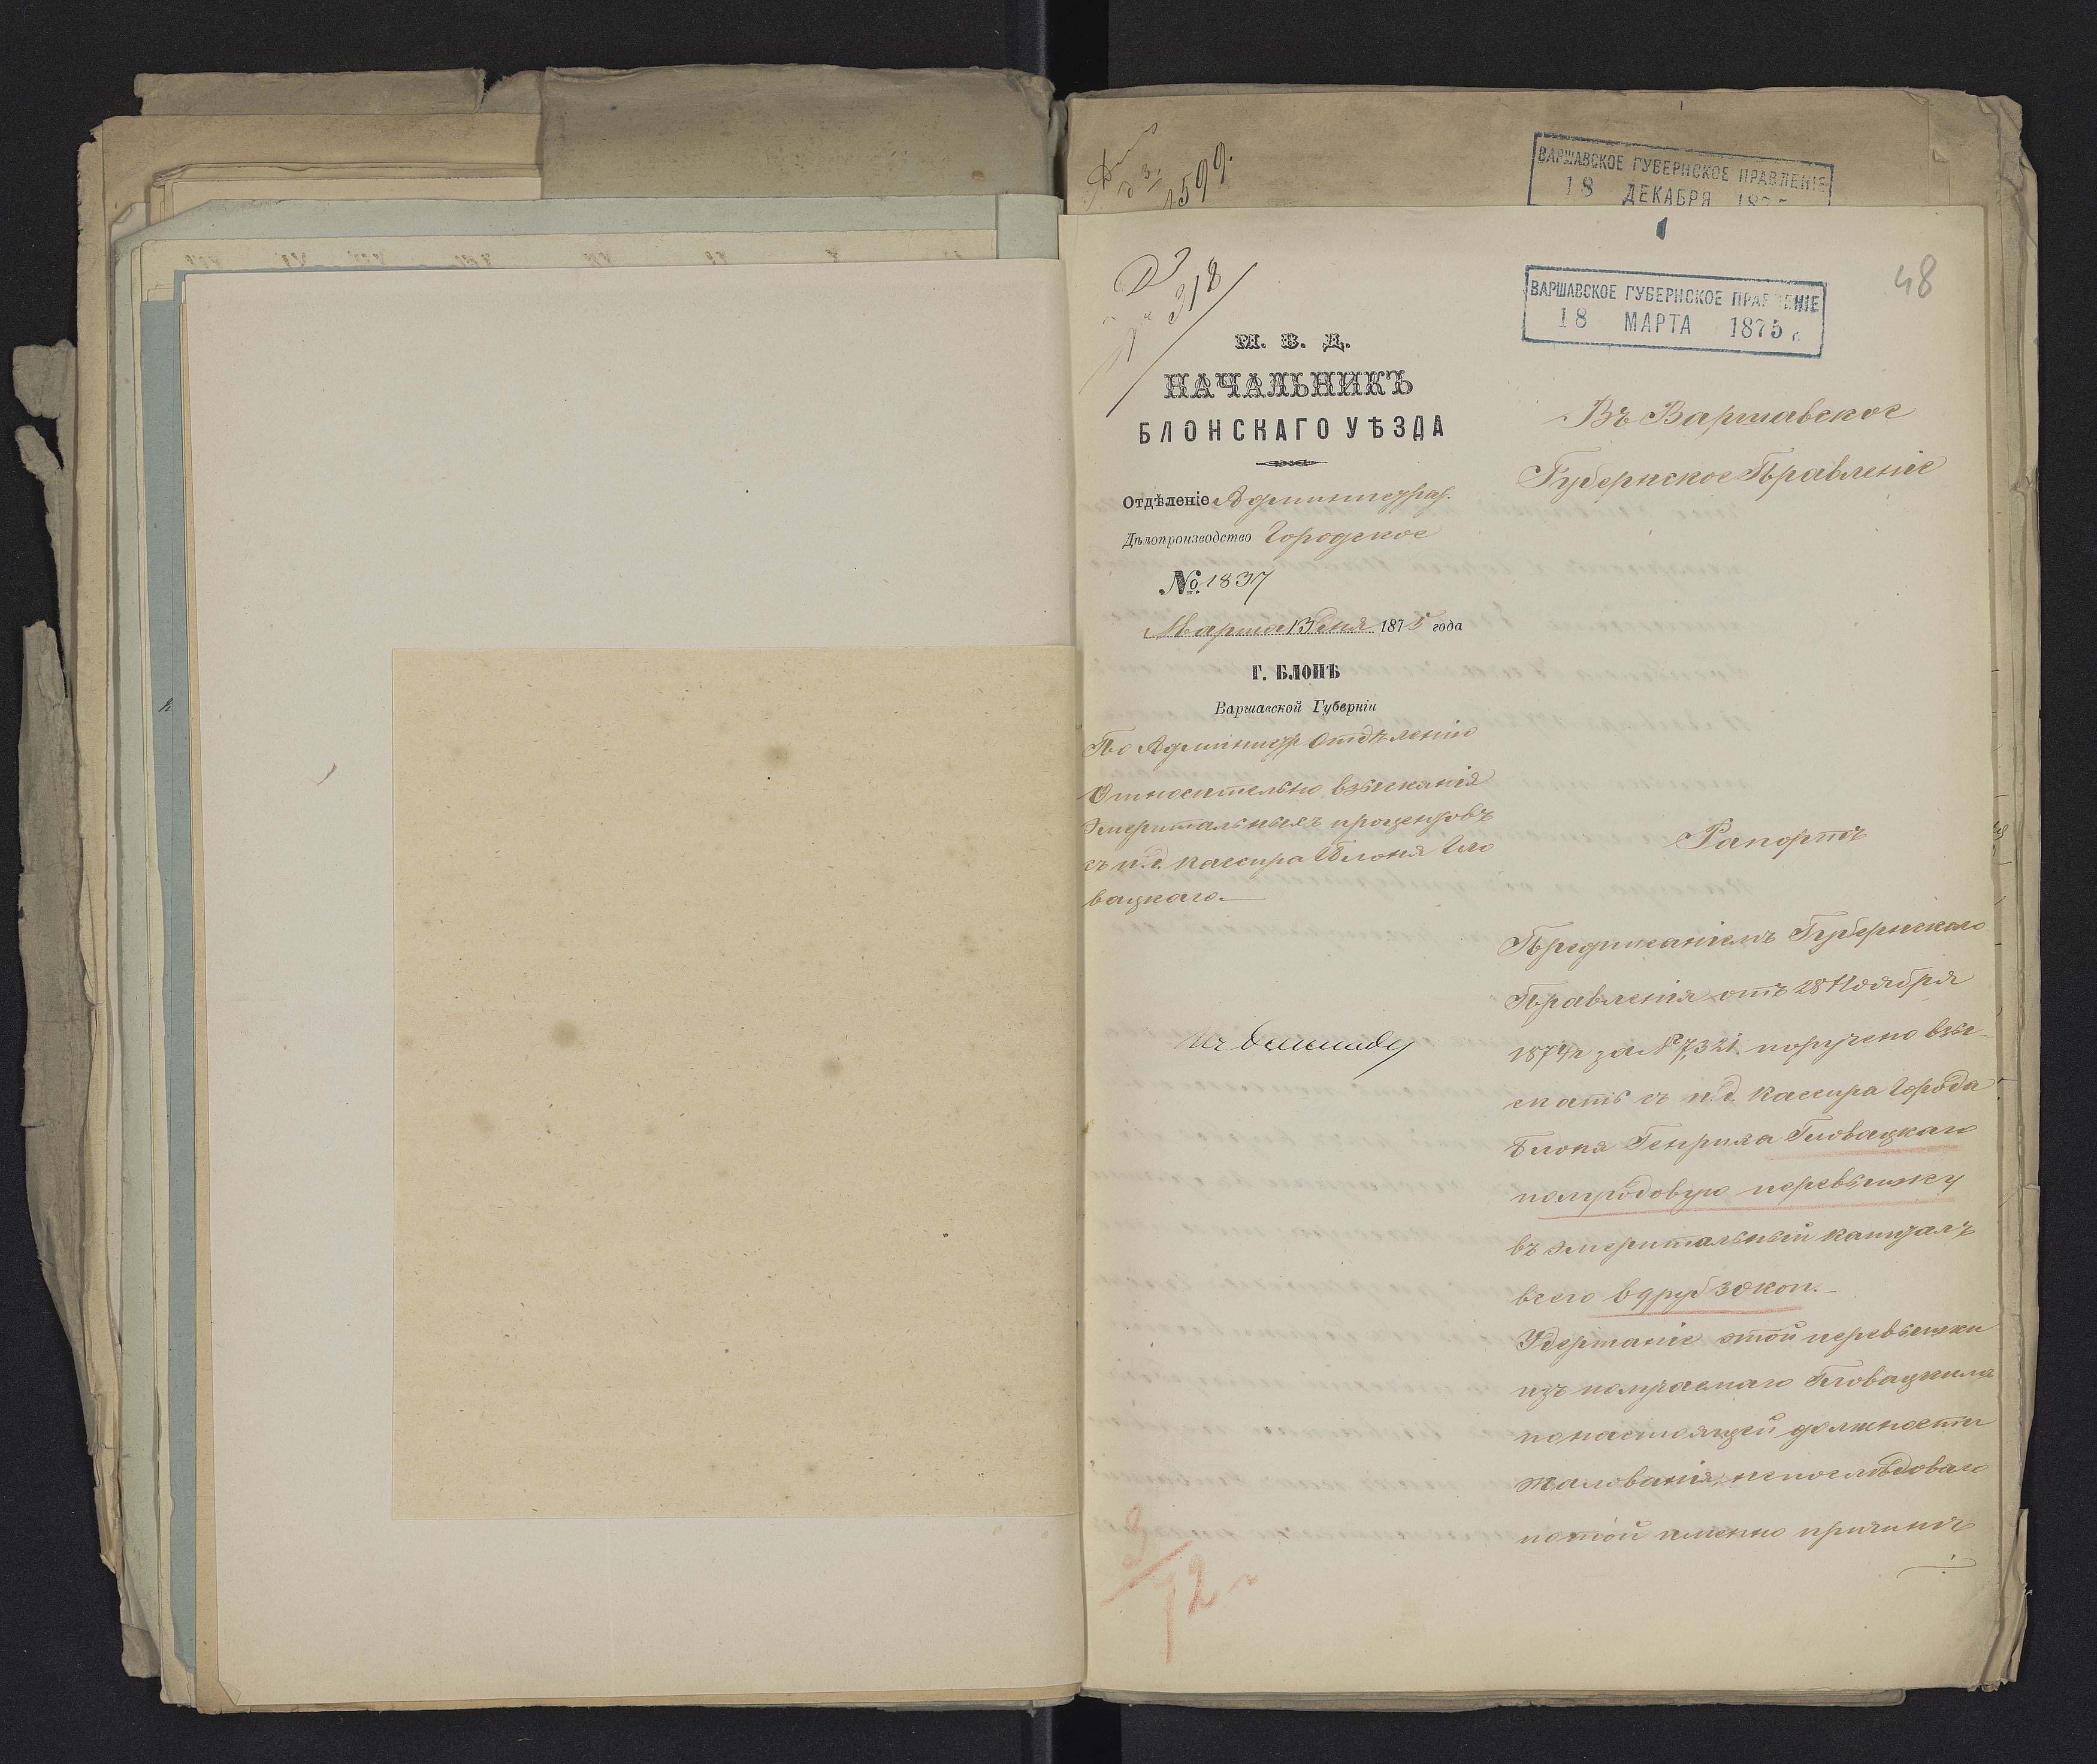 1599.
ВАРШАВСКОЕ ГУБЕРНСКОЕ ПРАВЛЕНІЕ
18 ДЕКАБРЯ
318
ВАРШАВСКОЕ ГУБЕРНСКОЕ ПРАВЛЕНІЕ
18 МАРТА 1875 г.
48
М. В. Д.
НАЧАЛЬНИКЪ
БЛОНСКАГО УѢЗДА
Отдѣленіе Администрац.
Дѣлопроизводство Городское
№ 1837
Марта 13 дня 1875 года
Г. БЛОНЪ
Варшавской Губерніи
По Администр Отдѣленію
Относительно взысканія
эмеритальныхъ процентовъ
съ и.д. Кассира Г Блоня Гло
вацкаго.—
Въ Варшавское
Губернское Правленіе
Рапортъ
Предписаніемъ Губернскаго
Правленія отъ 28 Ноября
1874 г за № 7321. поручено взы-
скать съ и.д. Кассира Города
Блоня Генриха Гловацкаго
полугодовую перевышку
въ эмеритальный капиталъ
всего руб 30 коп.—
Удержаніе этой перевышки
изъ получаемаго Гловацкимъ
по настоящей должности
жалованія, непослѣдовало
по той именно причинѣ
3/72